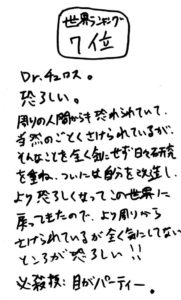 世界ランキング
7位
Dr.チュロス。
恐ろしい。
周りの人間からも恐れられていて、
当然のごとくさけられているが、
そんなことを全く気にせず日々研究
を重ね、ついには自分を改造し、
より恐ろしくなってこの世界に
戻ってきたので、より周りから
さけられているが全く気にしてない
ところが恐ろしい!!
必殺技:目がパーティー。